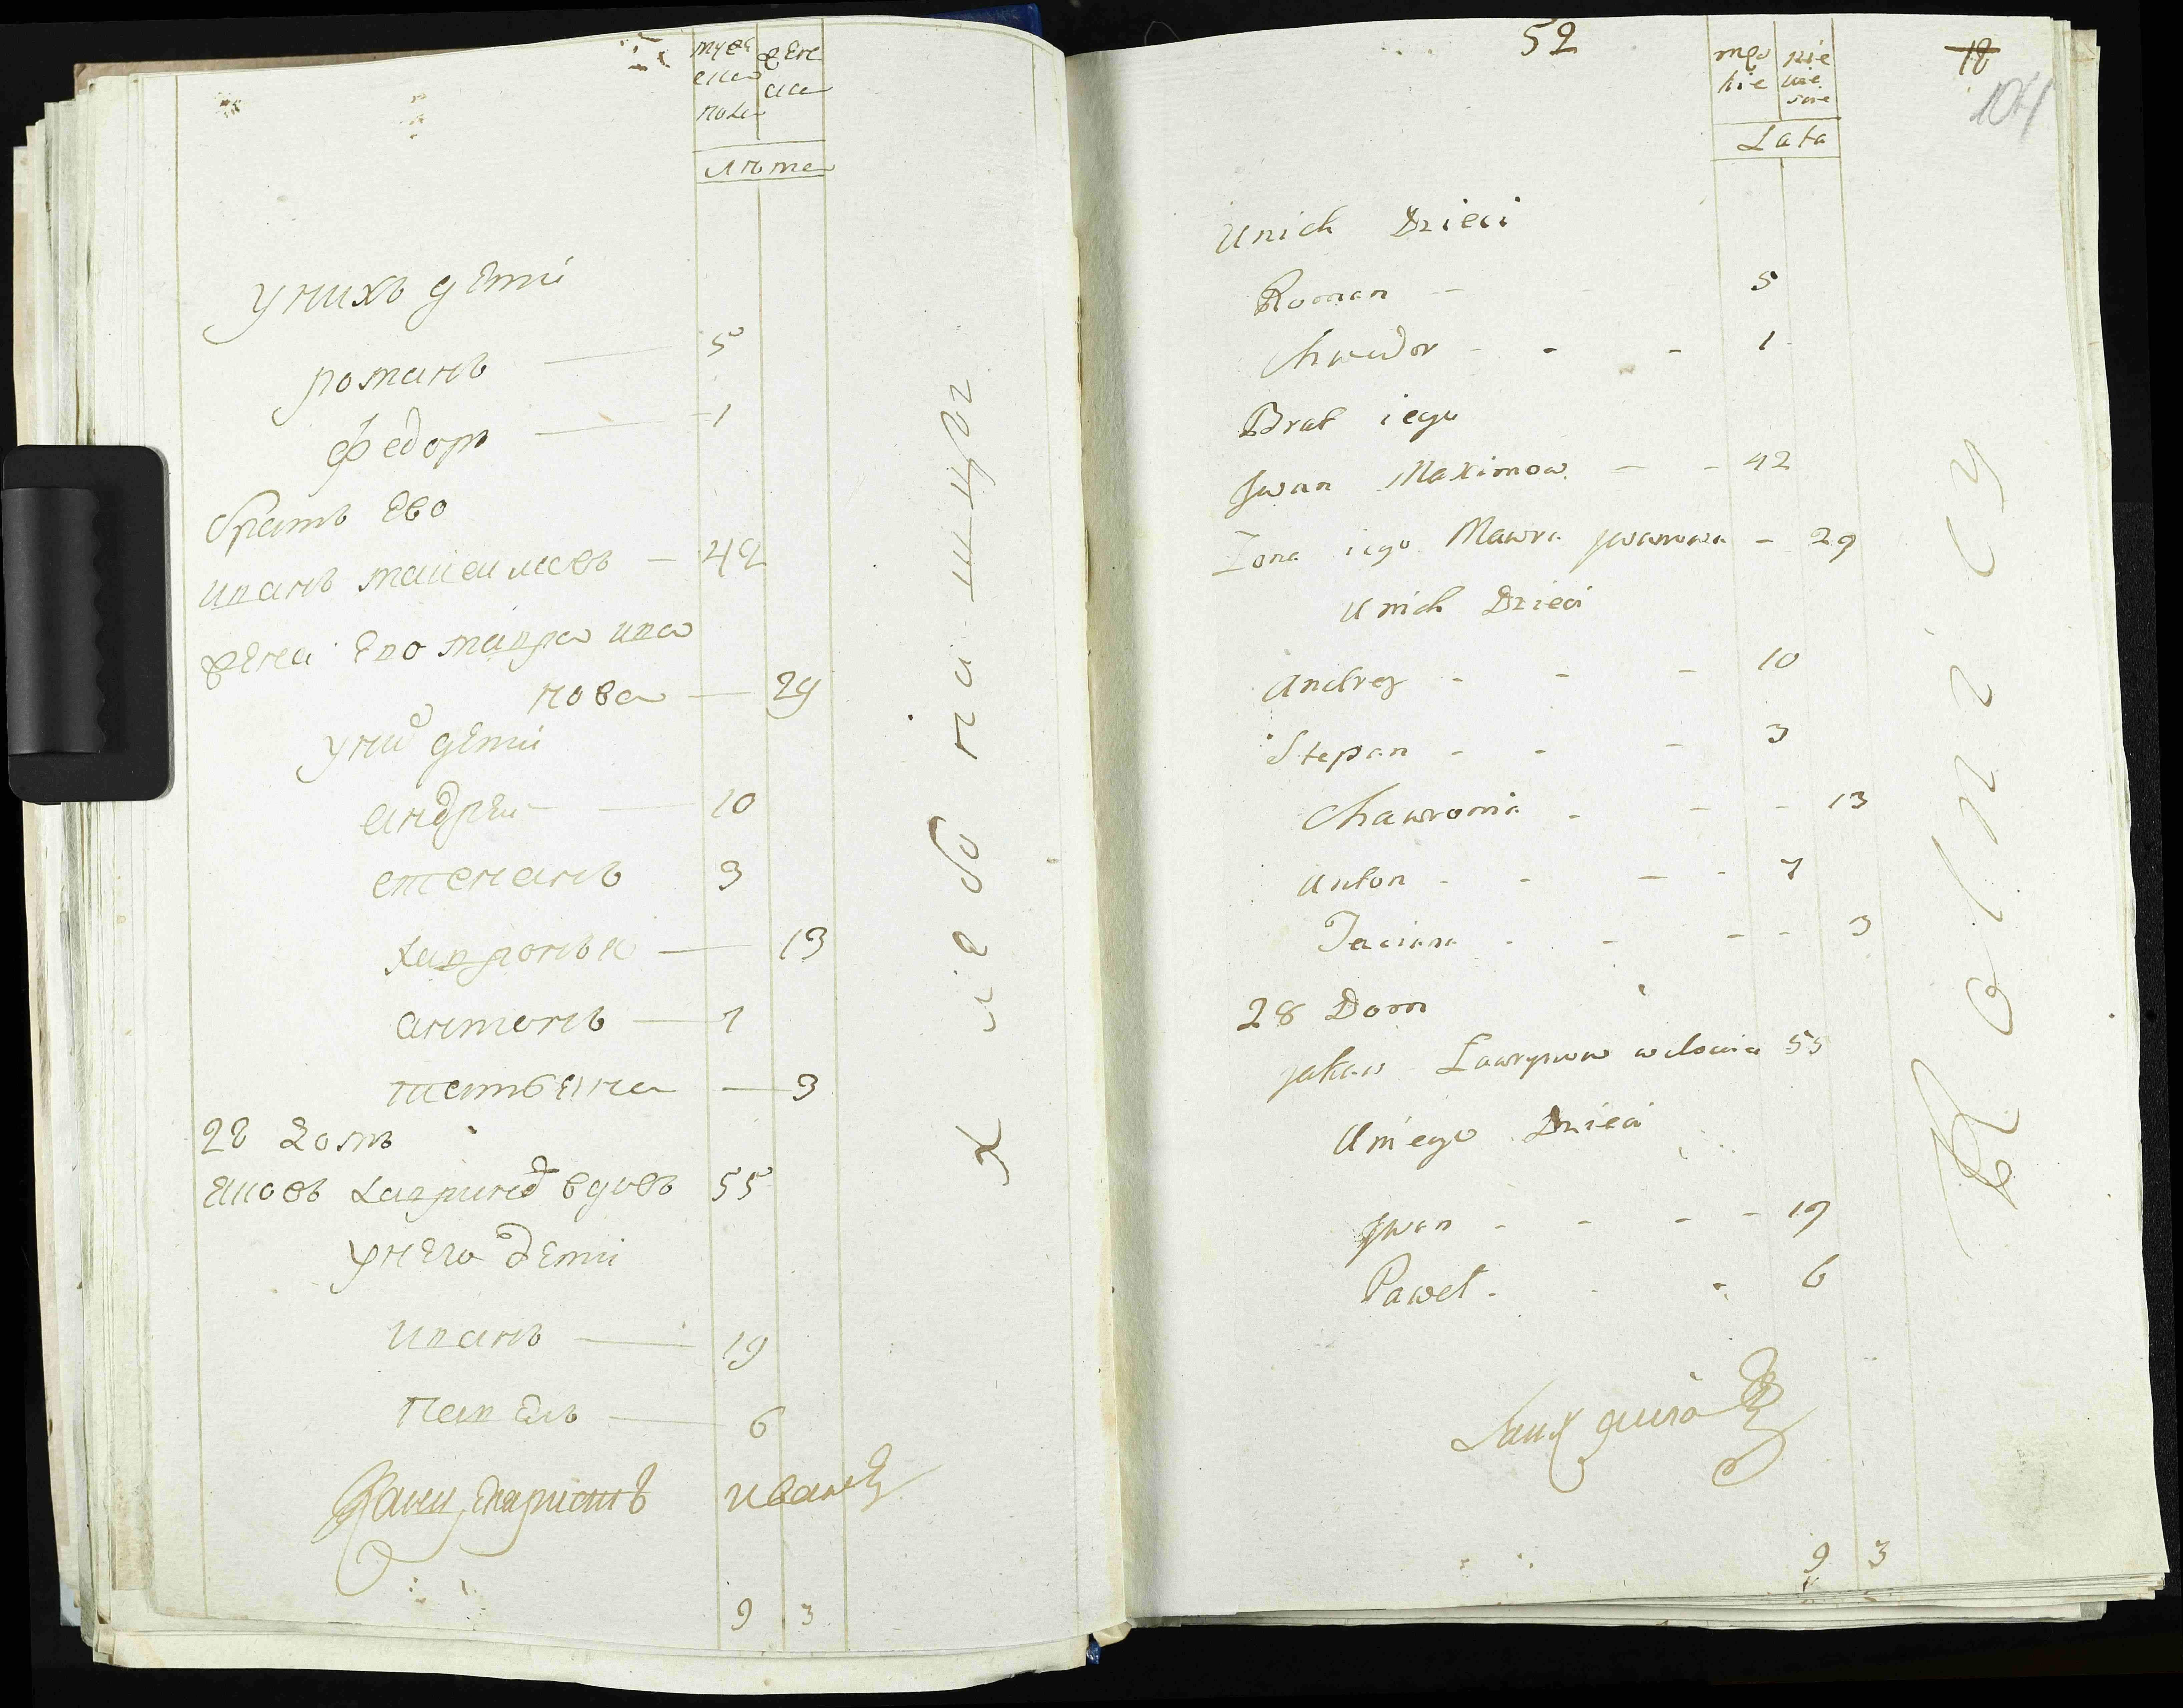 муже
ска
пола
жене
ска
лѣта
у нихъ дѣти
романъ — 5
федоръ — 1
братъ ево
иванъ максимовъ — 42
жена ево мавра ива
нова — 29
у них дѣти
андрей — 10
степанъ 3
хавронья — 13
антонъ — 7
татьяна — 3
28 домъ
яковъ лавринов вдовъ 55
у него дѣти
иванъ — 19
павелъ — 6
иванов
9 3
хлѣбопашцы
52
18
104
męz
kie
nie
wie
scie
Lata
Unich Dzieci
Roman - 5
Chwedor - - - 1
Brat iego
Jwan Maximow - - 42
Zona iego Mawra jwanowa - 29
Unich Dzieci
Andrey - - - 10
Stepan - - - 3
Chawronia - - - 13
Anton - - - - 7
Taciana - - - - 3
28 Dom
Jakow Lawrynow wdowiec 55
Uniego Dzieci
Jwan - - - - 19
Pawel - - - 6
9 3
Rolnicy